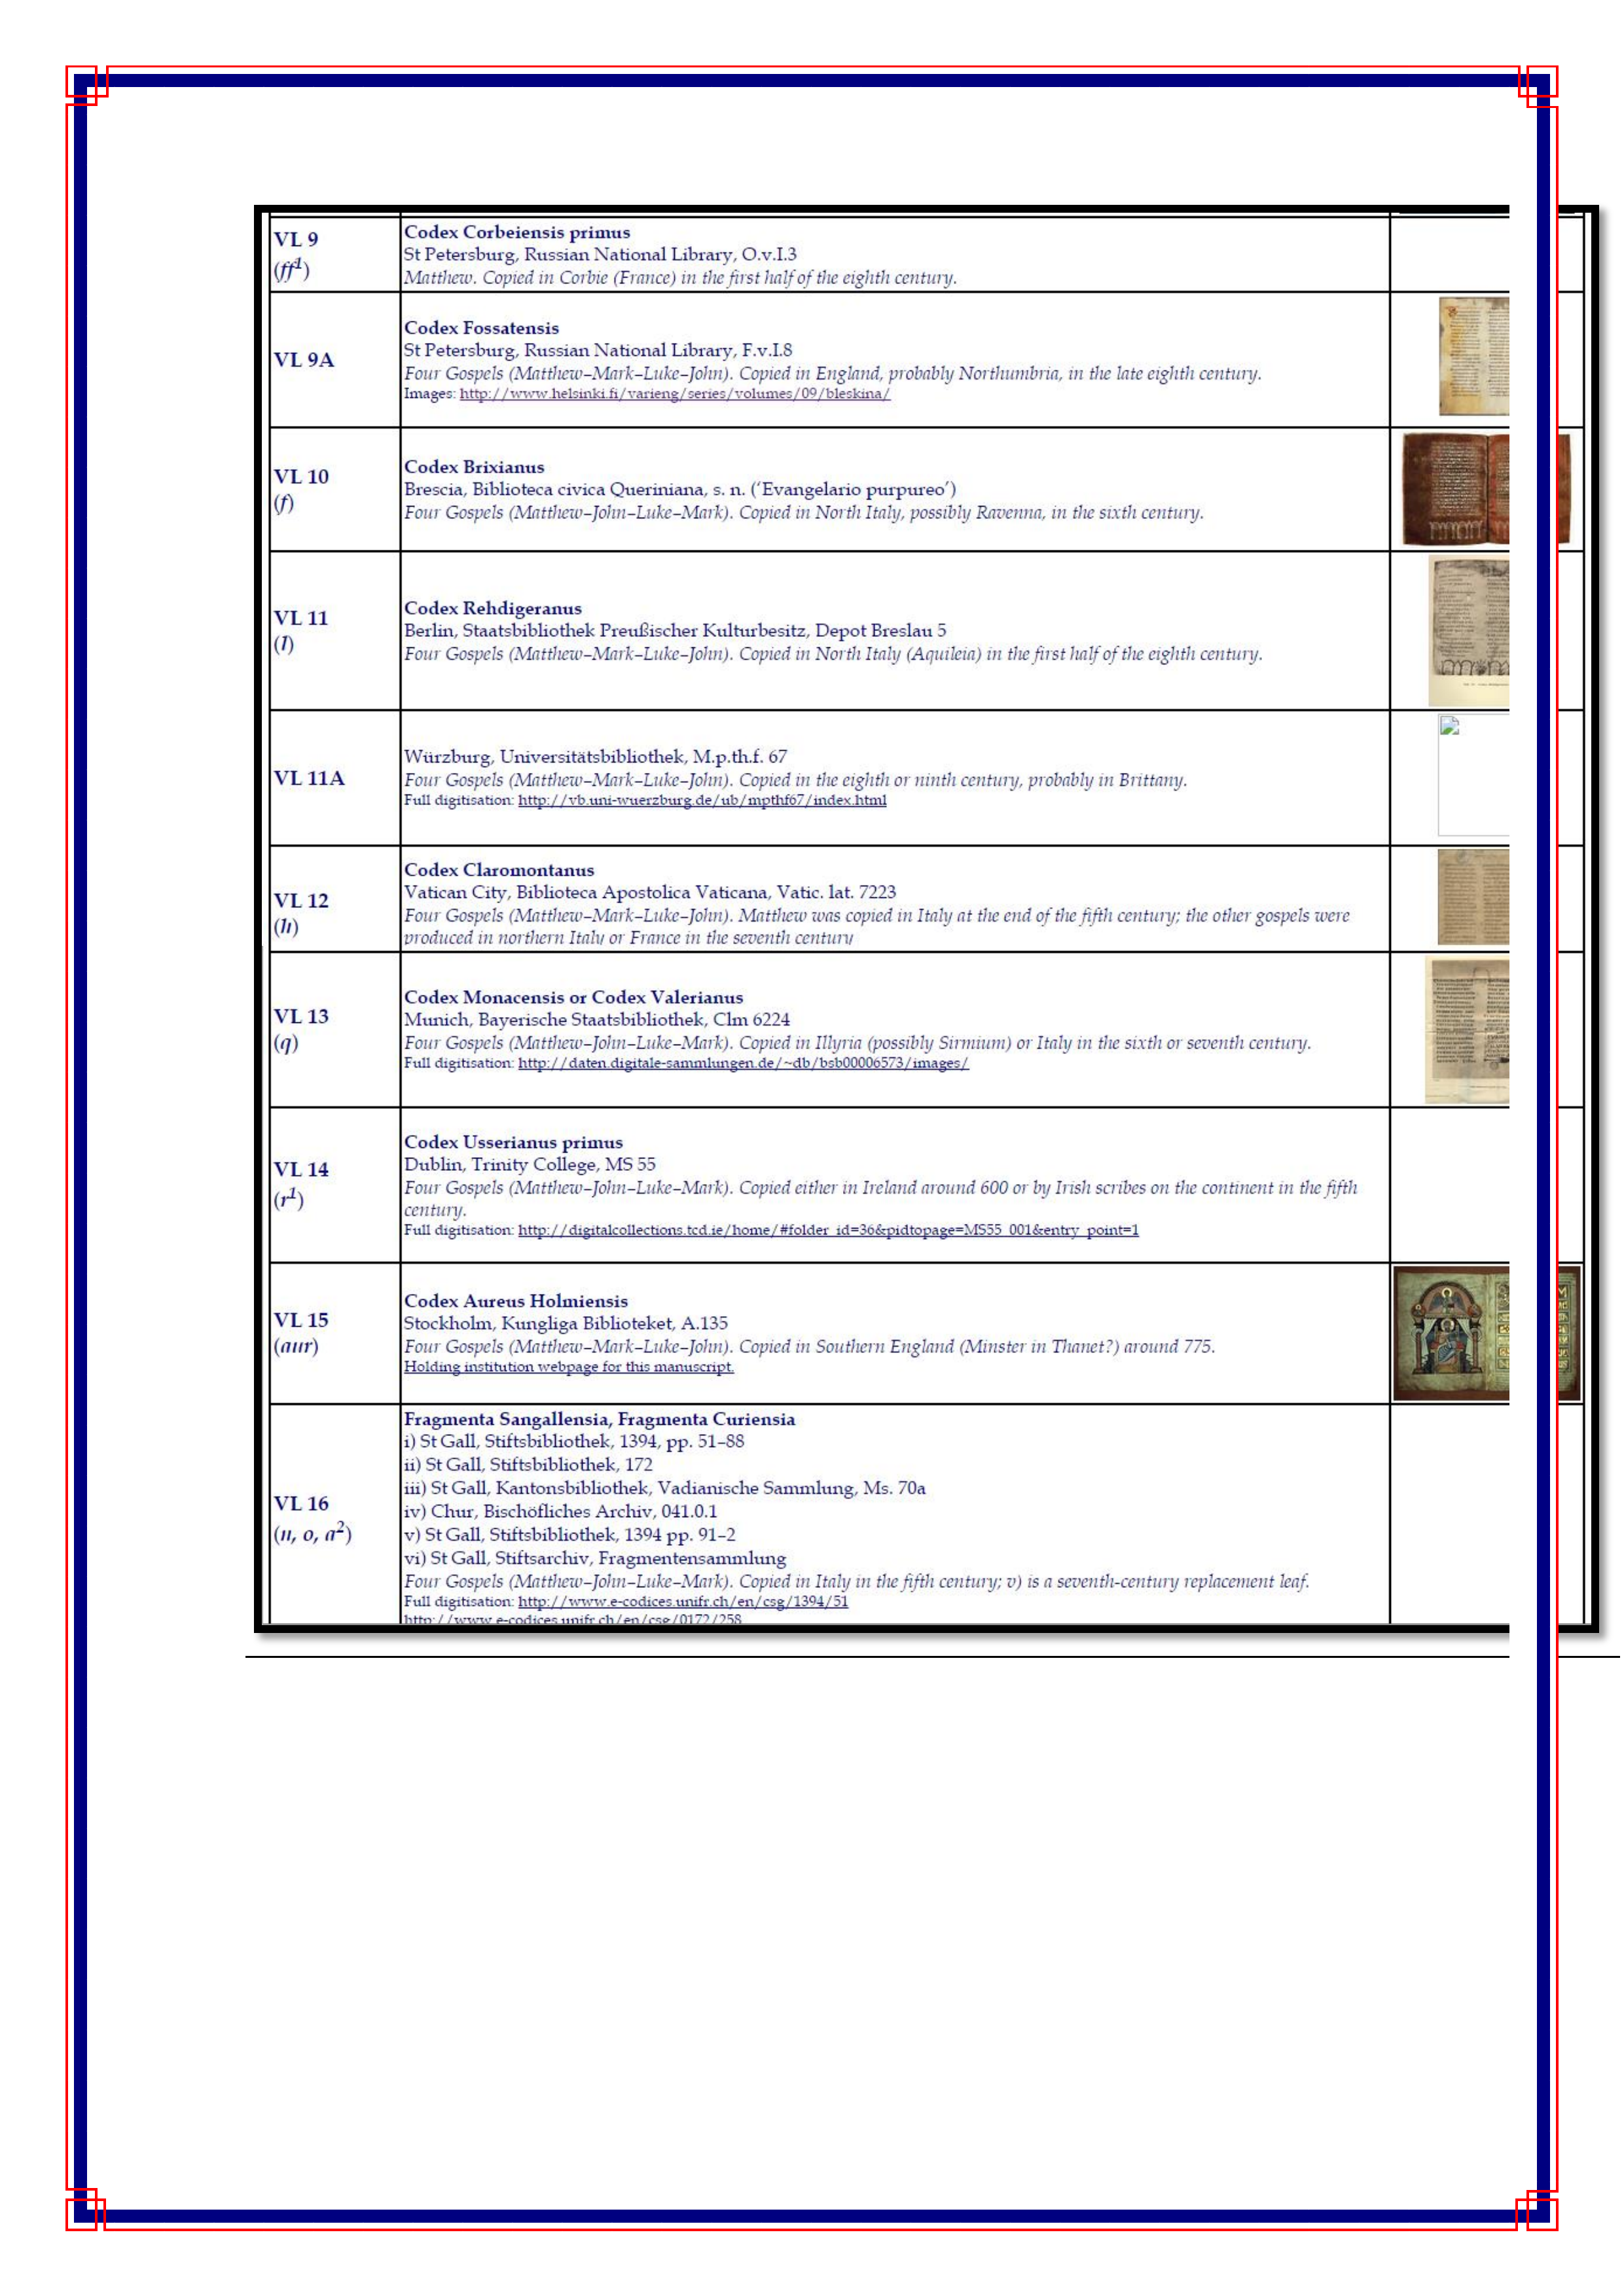 VL 9
(ff1)
Codex Corbeiensis primus
St Petersburg, Russian National Library, O.v.I.3
Matthew. Copied in Corbie (France) in the first half of the eighth century.
VL 9A
Codex Fossatensis
St Petersburg, Russian National Library, F.v.I.8
Four Gospels (Matthew–Mark–Luke–John). Copied in England, probably Northumbria, in the late eighth century.
Images: http://www.helsinki.fi/varieng/series/volumes/09/bleskina/
VL 10
(f)
Codex Brixianus
Brescia, Biblioteca civica Queriniana, s. n. (‘Evangelario purpureo’)
Four Gospels (Matthew–John–Luke–Mark). Copied in North Italy, possibly Ravenna, in the sixth century.
VL 11
(l)
Codex Rehdigeranus
Berlin, Staatsbibliothek Preußischer Kulturbesitz, Depot Breslau 5
Four Gospels (Matthew–Mark–Luke–John). Copied in North Italy (Aquileia) in the first half of the eighth century.
VL 11A
Würzburg, Universitätsbibliothek, M.p.th.f. 67
Four Gospels (Matthew–Mark–Luke–John). Copied in the eighth or ninth century, probably in Brittany.
Full digitisation: http://vb.uni-wuerzburg.de/ub/mpthf67/index.html
VL 12
(h)
Codex Claromontanus
Vatican City, Biblioteca Apostolica Vaticana, Vatic. lat. 7223
Four Gospels (Matthew–Mark–Luke–John). Matthew was copied in Italy at the end of the fifth century; the other gospels were
produced in northern Italy or France in the seventh century
VL 13
(q)
Codex Monacensis or Codex Valerianus
Munich, Bayerische Staatsbibliothek, Clm 6224
Four Gospels (Matthew–John–Luke–Mark). Copied in Illyria (possibly Sirmium) or Italy in the sixth or seventh century.
Full digitisation: http://daten.digitale-sammlungen.de/~db/bsb00006573/images/
VL 14
(r1)
Codex Usserianus primus
Dublin, Trinity College, MS 55
Four Gospels (Matthew–John–Luke–Mark). Copied either in Ireland around 600 or by Irish scribes on the continent in the fifth
century.
Full digitisation: http://digitalcollections.tcd.ie/home/#folder_id=36&pidtopage=MS55_001&entry_point=1
VL 15
(aur)
Codex Aureus Holmiensis
Stockholm, Kungliga Biblioteket, A.135
Four Gospels (Matthew–Mark–Luke–John). Copied in Southern England (Minster in Thanet?) around 775.
Holding institution webpage for this manuscript.
VL 16
(n, o, a2)
Fragmenta Sangallensia, Fragmenta Curiensia
i) St Gall, Stiftsbibliothek, 1394, pp. 51–88
ii) St Gall, Stiftsbibliothek, 172
iii) St Gall, Kantonsbibliothek, Vadianische Sammlung, Ms. 70a
iv) Chur, Bischöfliches Archiv, 041.0.1
v) St Gall, Stiftsbibliothek, 1394 pp. 91–2
vi) St Gall, Stiftsarchiv, Fragmentensammlung
Four Gospels (Matthew–John–Luke–Mark). Copied in Italy in the fifth century; v) is a seventh-century replacement leaf.
Full digitisation: http://www.e-codices.unifr.ch/en/csg/1394/51
http://www.e-codices.unifr.ch/en/csg/0172/258